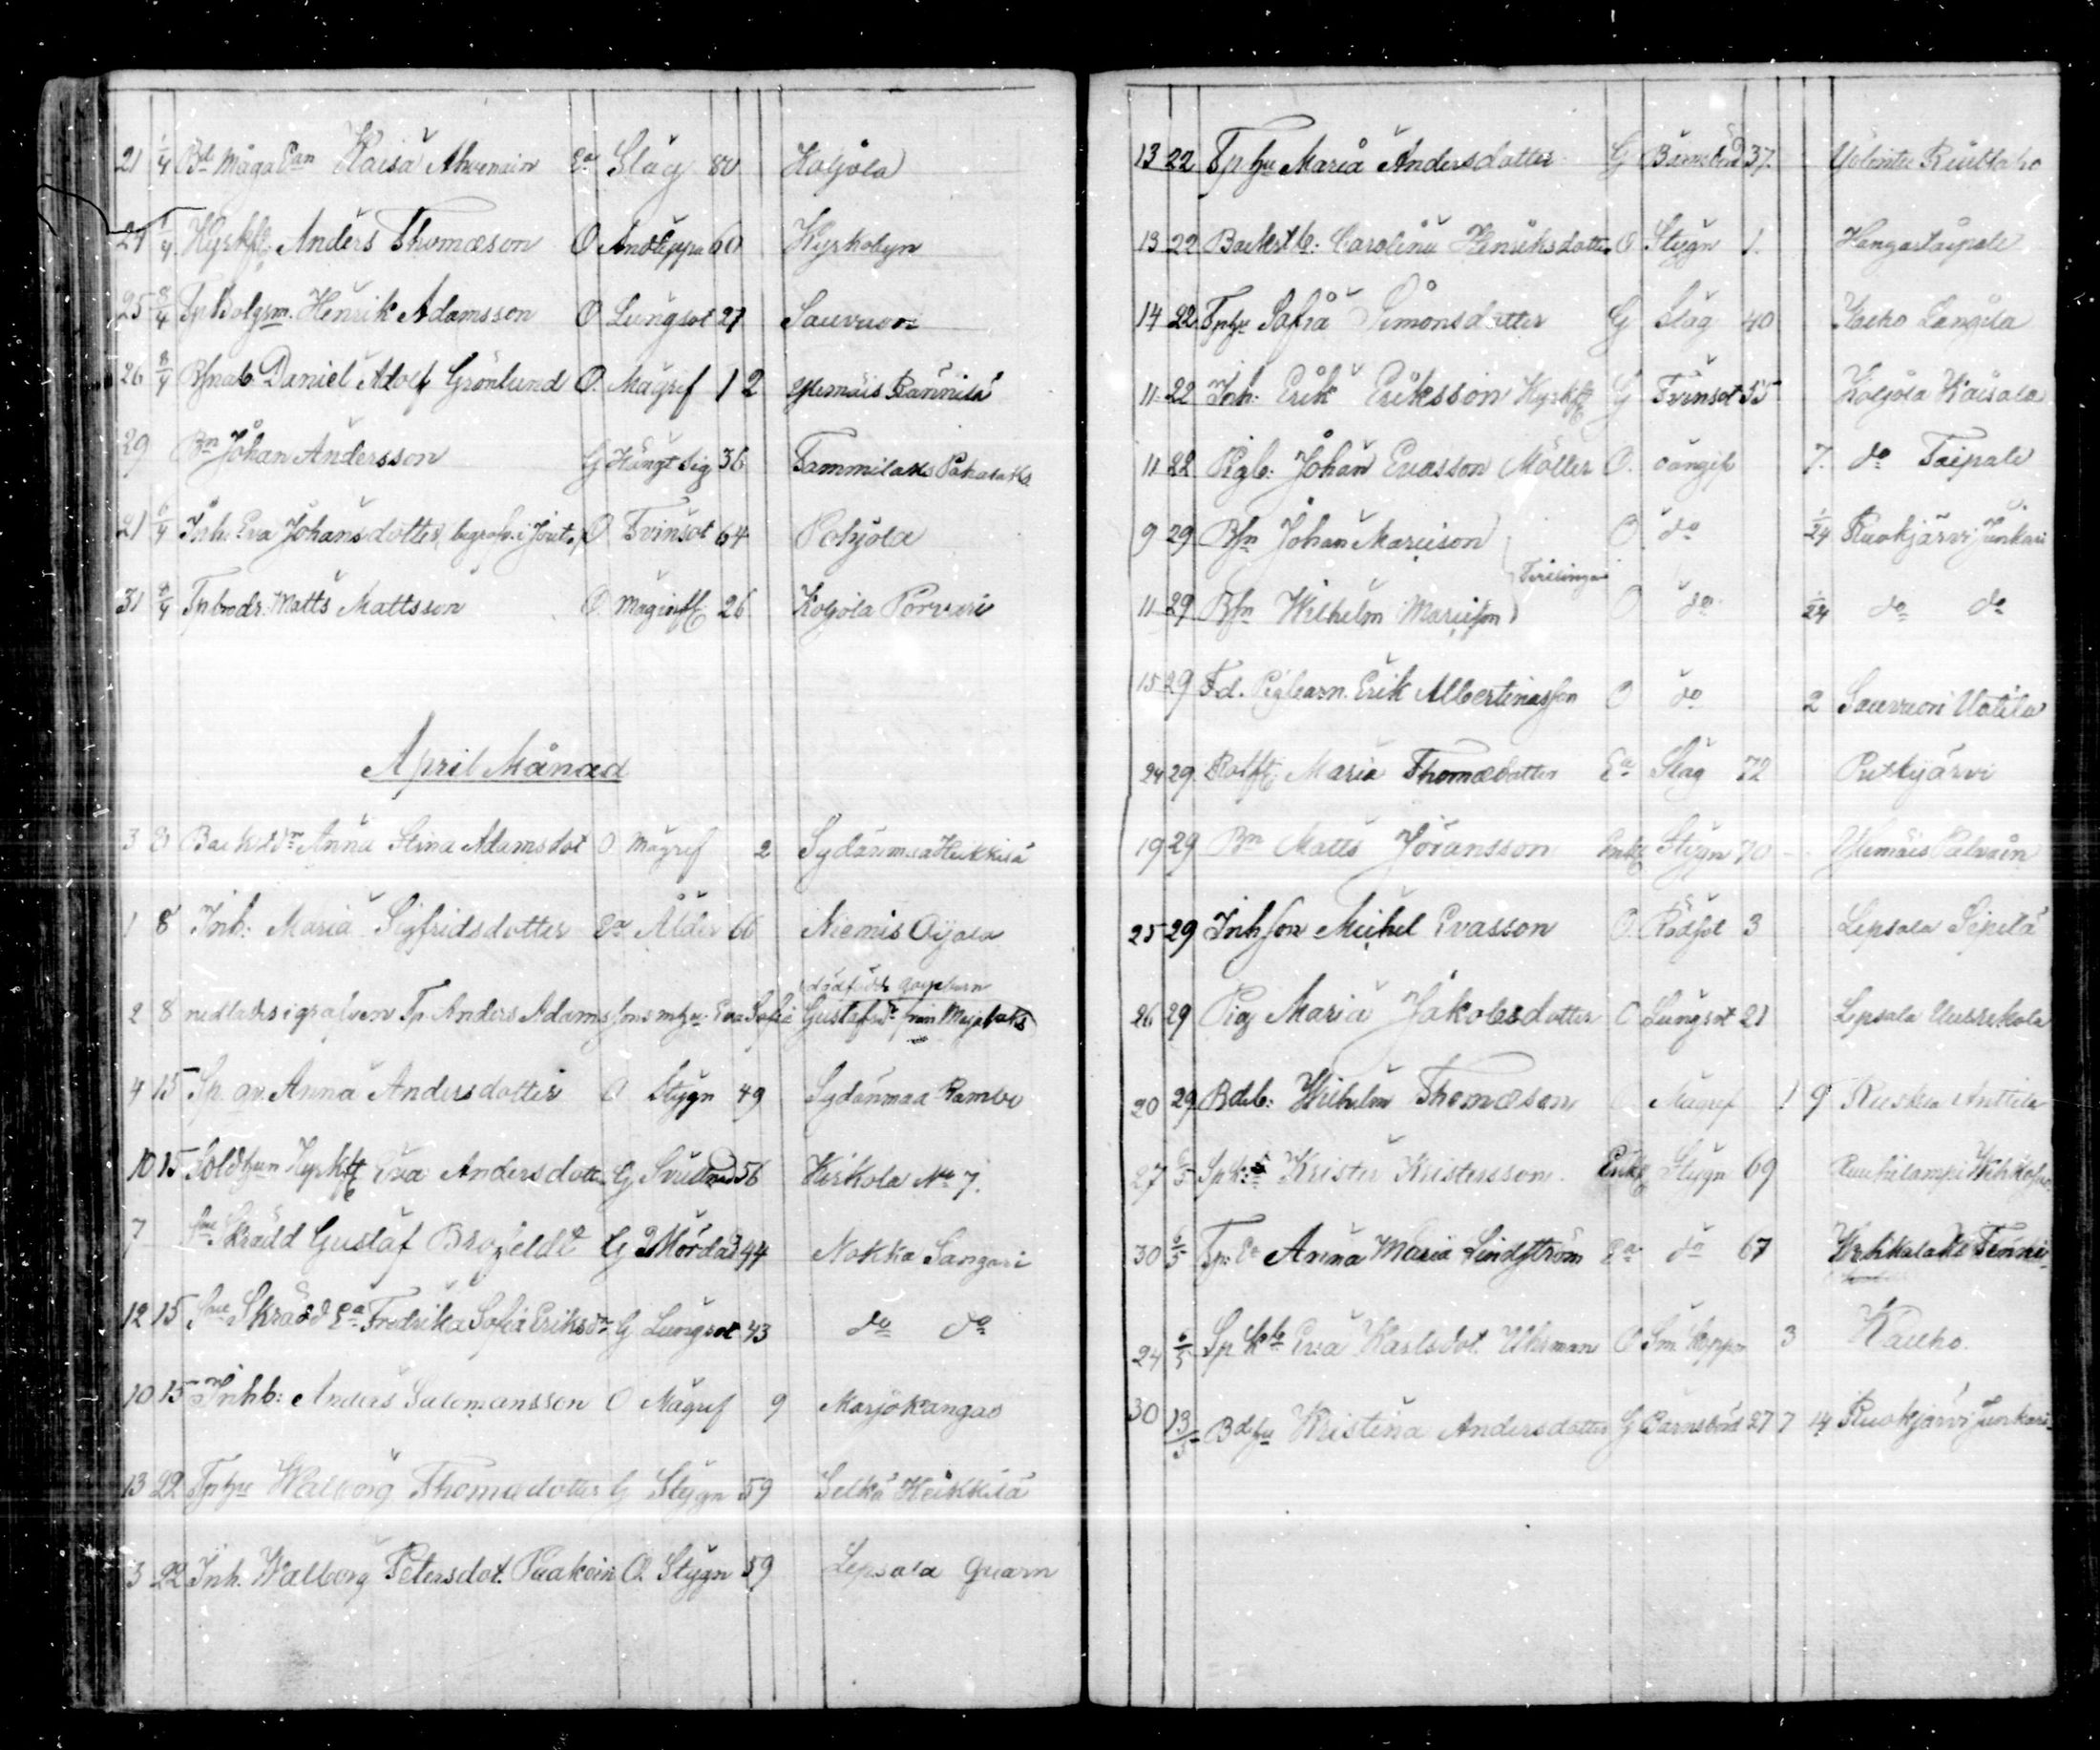 21 1/4 Bd Måga Ean Kaisa Ahvenain Ea Slag 80 Koljola
21 1/4 Kyrkftg Anders Thomæson O Andtäppa 60 Kyrkobyn
25 8/4 Tp Bolgsm. Henrik Adamsson O Lungsot 27 Sauvuori
26 8/4 Daniel Adolf Grönlund O Magref 1 2 Ylimäis Rännilä
29 Bn Johan Andersson G Hängt sig 36 Tammilaks Pahalaks
21 6/4 Inh. Eva Johansdotter (begrafv. i Jouts.) O Tvinsot 64 Pohjola
31 8/4 Matts Mattsson O Maginfl 26 Koljola Porvari
April Månad
3 8 Anna Stina Adamsdot O Magref 2 Sydänmaa Heikkilä
1 8 Inh: Maria Sigfridsdotter Ea Ålder 66 Niemis Oijala
dödfödt gossebarn
2 8 nedlades i grafven Tp. Anders Adamssons m hu. Eva Sofia Gustafsdr från Maijalaks
4 15 Sp. qv. Anna Andersdotter O Stygn 49 Sydänmaa Rambo
10 15 Soldhun Kyrkftg Eva Andersdott G 56 Kirkola No 7.
7 Skrädd Gustaf Brofeldt G Mördad 44 Nokka Sangari
12 15 Skrädd Ea Fredrika Sofia Eriksdr G Lungsot 43 do do
10 15 Inhb: Anders Salomansson O Magref 9 Marjokangas
13 22 Tphu Walborg Thomædotter G Stygn 59 Selkä Heikkilä
3 22 Inh. Walborg Petersdot. Paakoin O. Stygn 59 Lepsala Quarn
13 22 Tp hu Maria Andersdotter G Barnsbörd 37. Riuttaho
13 22 Carolina Henriksdotter O Stygn 1. Kangastaipale
14 22 Tphu Sofia Simonsdotter G Slag 40 Kauho Längilä
11 22 Inh: Erik Eriksson Kyrkftg G Tvinsot 55 Koljola Kaisala
11 22 Pigb: Johan Evasson Möller O. oängif 7. do Taipale
9 29 Bfn Johan Mariæson O do 1/24 Ruokjärvi Junkari
Tvillingar
11 29 Bfn Wilhelm Mariæson O do 1/24 do do
15 29 Fd. Pigbarn. Erik Albertinasson O do 2 Sauvuori Uotila
24 29 Rotftg Maria Thomædotter Ea Slag 72 Pätkjärvi
19 29 Bn Matts Jöransson Enkl Stygn 70 Ylimäis Palvain
25 29 Inhson Mickel Evasson O. Rödsot 3 Lepsala Sipilä
26 29 Pig Maria Jakobsdotter O Lungsot 21 Lepsala Uusikola
20 29 Bdb: Wilhelm Thomæson O Magref 1 9 Ruskea Anttila
27 6/5 Krister Kristersson Enkl Stygn 69 Ruuhilampi
30 6/5 Tp: Ea Anna Maria Lindström Ea do 67
24 6/5 Eva Karlsdot Uhrman O Sm. Koppor 3 Kauho.
30 13/5 Bdhu Kristina Andersdotter G Barnsbörd 27 7 14 Ruokjärvi Junkari